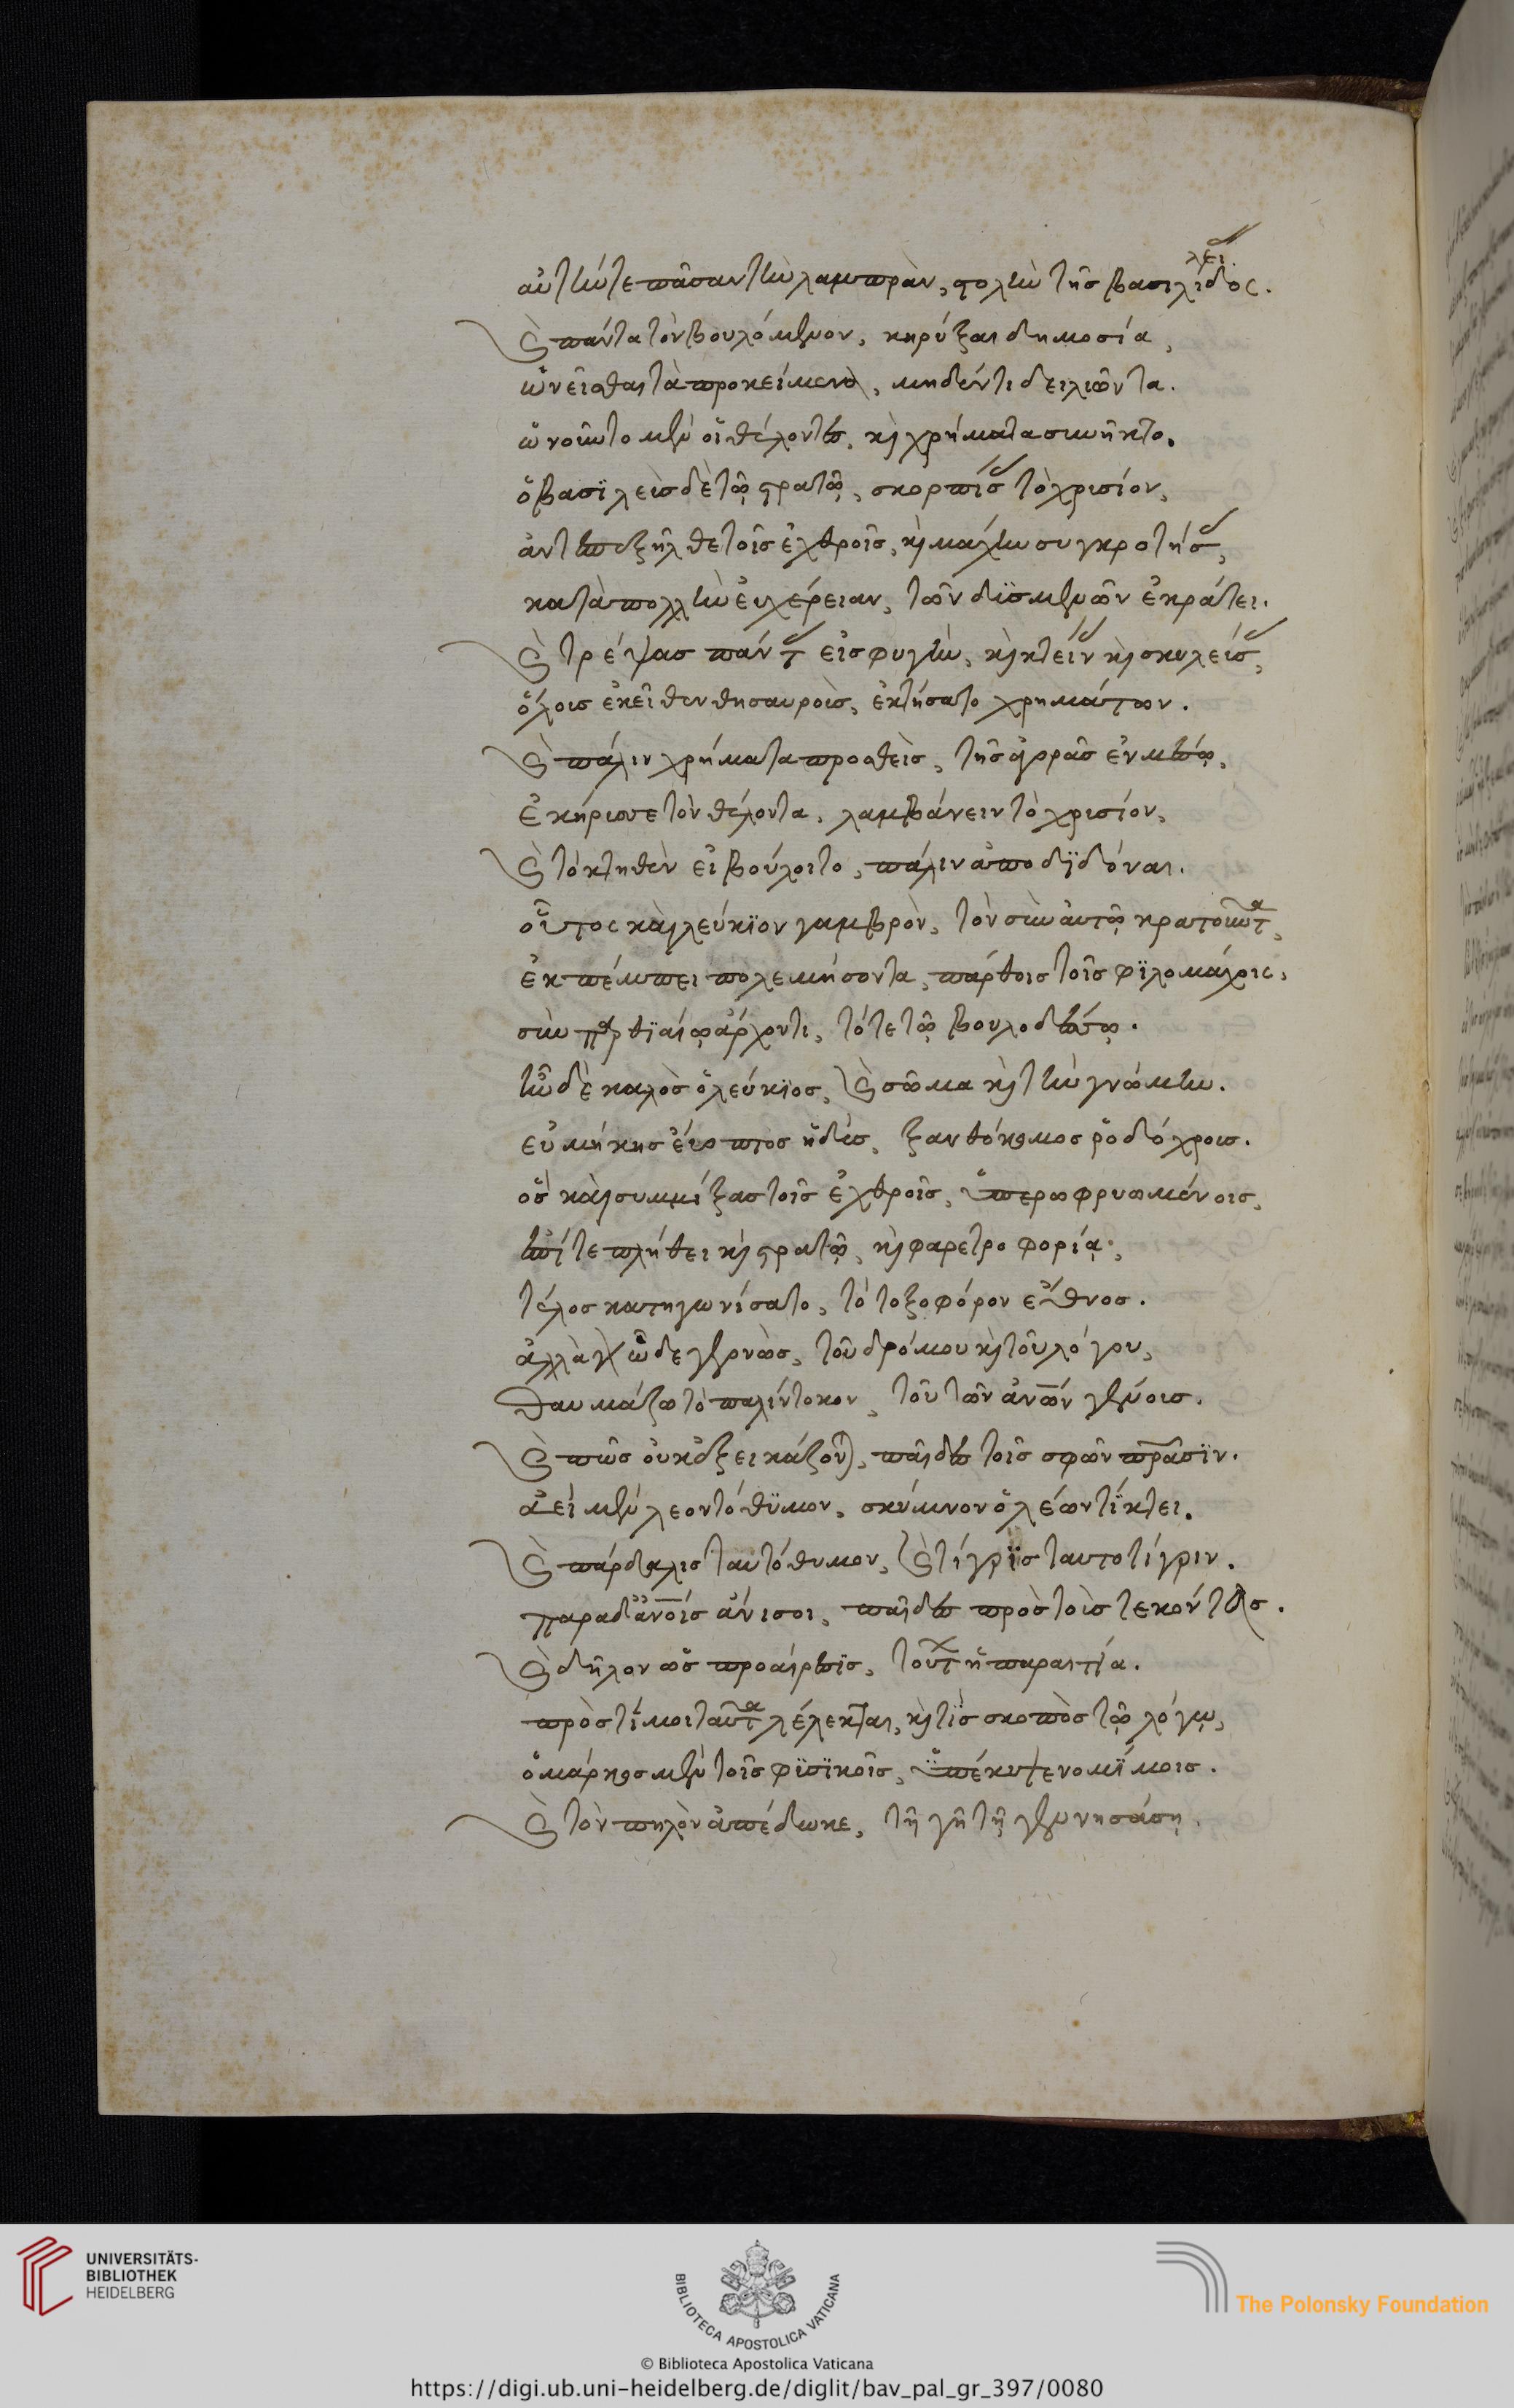 λει
αὐτήν τε πᾶσαν τὴν λαμπρὰν, στολὴν τῆς βασιλίδος.
καὶ πάντα τὸν βουλόμενον, κηρύξαι δημοσία,
ὠνεῖσθαι τὰ προκείμενα, μηδέν τι δειλιῶντα.
ὠνοῦντο μὲν οἱ θέλοντες, καὶ χρήματα συνῆκτο.
ὁ βασϊλεὺς δὲ τῷ στρατῷ, σκορπίσας τὸ χρυσίον,
ἀντεπεξῆλθε τοῖς ἐχθροῖς, καὶ μάχην συγκροτήσας,
κατὰ πολλὴν εὐχέρειαν, τῶν δυσμενῶν ἐκράτει.
καὶ τρέψας πάντας εἰς φυγὴν, καὶ κτείνας καὶ σκυλεύσας,
ὅλους ἐκεῖθεν θησαυροὺς, ἐκτήσατο χρημάτων.
καὶ πάλιν χρήματα προσθεὶς, τῆς ἀγορᾶς ἐν μέσῳ,
ἐκήρυττε τὸν θέλοντα, λαμβάνειν τὸ χρυσίον,
καὶ τὸ κτηθὲν εἰ βούλοιτο, πάλιν ἀποδϊδόναι.
οὗτος καὶ λεύκϊον γαμβρὸν, τὸν σὺν αὐτῷ κρατοῦντα,
ἐκπέμπει πολεμήσοντα, πάρθοις τοῖς φϊλομάχοις,
σὺν παρθϊαίῳ ἄρχοντι, τότε τῷ βουλογέσῳ.
ἦν δὲ καλὸς ὁ λεύκϊος, καὶ σῶμα καὶ τὴν γνώμην.
εὐμήκης εὔοπτος ἡδὺς, ξανθόκομος ῥοδόχρους.
ὃς καὶ συμμίξας τοῖς ἐχθροῖς, ὑπερωφρυωμένοις,
ἐπί τε πλήθει καὶ στρατῷ, καὶ φαρετροφορίᾳ,
τέλος κατηγωνίσατο, τὸ τοξοφόρον ἔθνος.
ἀλλὰ γὰρ ὧδε γεγονὼς, τοῦ δρόμου καὶ τοῦ λόγου,
θαυμάζω τὸ παλίντοκον, τοῦ τῶν ἀνων γένους.
καὶ πῶς οὐκ ἐξεικάζονται, παῖδες τοῖς σφῶν πρασϊν.
ἀεὶ μὲν λεοντόθϋμον, σκύμνον ὁ λέων τίκτει.
καὶ πάρδαλις ταυτόθυμον, καὶ τίγρϊς ταυτοτίγριν.
παρὰ δ' ἀνοις ἄνισοι, παῖδες πρὸς τοὺς τεκόντας.
καὶ δῆλον ὡς προαίρεσϊς, τούτων ἡ παραιτία.
πρὸς τί μοι ταῦτα λέλεκται, καὶ τίς σκοπὸς τῷ λόγῳ,
ὁ μάρκος μὲν τοῖς φϋσϊκοῖς, ὑπέκυψε νομίμοις.
καὶ τὸν πηλὸν ἀπέδωκε, τῇ γῇ τῇ γεννησάσῃ.
UNIVERSITÄTS-
BIBLIOTHEK
HEIDELBERG
BIBLIOTECA APOSTOLICA VATICANA
© Biblioteca Apostolica Vaticana
The Polonsky Foundation
https://digi.ub.uni-heidelberg.de/diglit/bav_pal_gr_397/0080